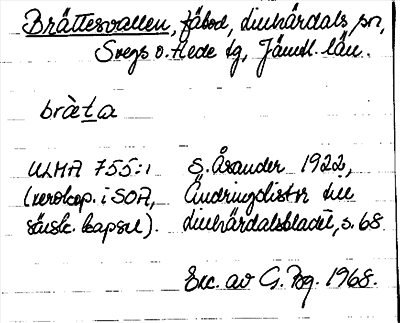 Brättesvallen, fäbod, Linhärdals sn,
Svegs o. Hede tg, Jämtl. län.
bràta
ULMA 755:1 S. Åsander 1922,
(xerokop. i SOA, Ändringslistor till
särsk. kapsel). Linhärdalsbladet, s. 68
Exc. av G. Pg. 1968.